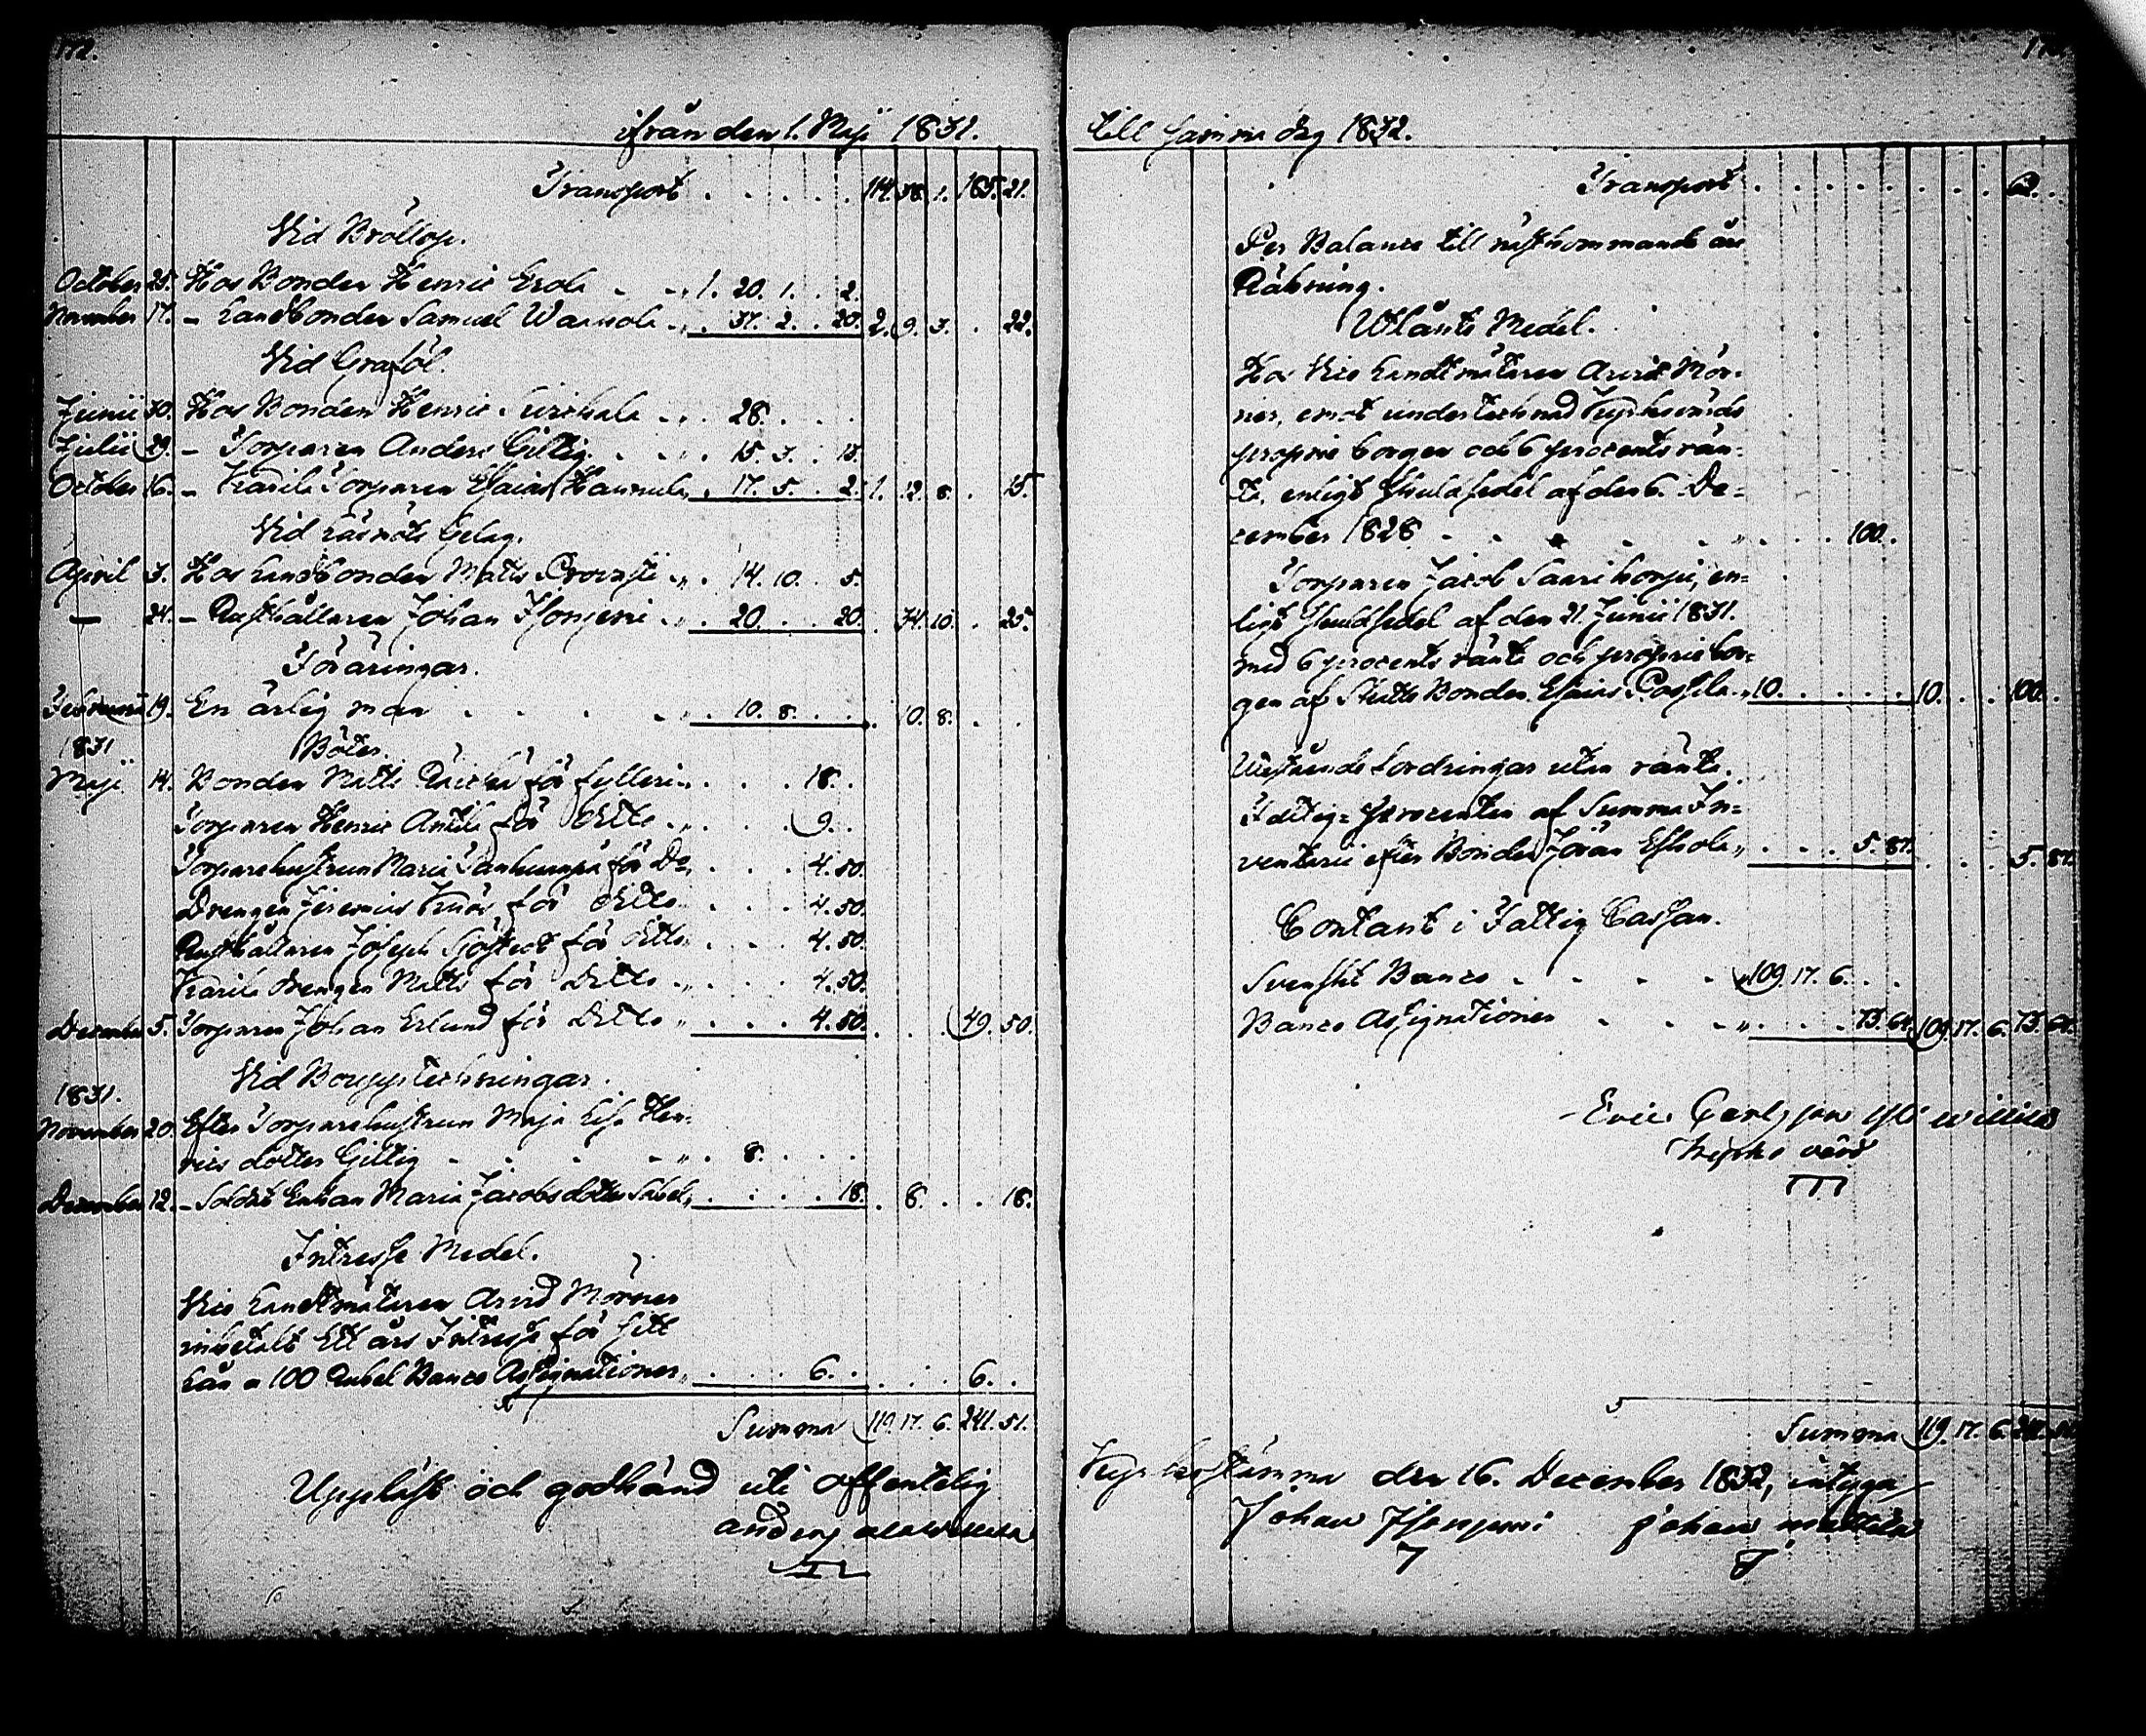 172.
ifrån den 1. Maji 1831.
Transport . . . . . 114. 38. 1. 185. 21.
Vid Bröllop.
October 25. Hos Bonden Henric Erola . . „ 1. 20. 1. . 2.
November 17. – Landbonden Samuel Warnola . „ . 37. 2. . 20. 2. 9. 3. . 22.
Vid Graföl.
Junii 30. Hos Bonden Henric . „ . 28. . . .
Julii 29. – Torparen Anders Gillig . . „ . 15. 3. . 13.
October 16. – Karila Torparen Esaias Hannula „ . 17. 5. . 2. 1. 12. 8. . 15.
Vid Läsmöts Gelag.
April 3. Hos Landbonden Matts Provasti „ . 14. 10. . 5.
— 24. – Rusthållaren Johan Isonjemi . „ . 20. . . 20. . 34. 10. . 25.
Föräringar.
Februarii 19. En ärlig man . . . . „ . 10. 8. . . . 10. 8. . .
1831 Böter.
Maji 14. Bonden Matts för fylleri „ . . . 18. .
Torparen Henric Anttila för Ditto . „ . . . 9. .
Torparehustrun Maria för Do „ . . . 4. 50.
Drengen Jeremias för Ditto „ . . . 4. 50.
Rusthållaren Joseph Sjöstedt för Ditto „ . . . 4. 50.
Karila drengen Matts för Ditto . „ . . . 4. 50.
December 5. Torparen Johan Erlund för Ditto „ . . . 4. 50. . . . 49. 50.
Vid Bouppteckningar.
1831.
November 20. Efter Torparehustrun Maja Lisa Hen-
rics dotter Gillig . . . . „ . 8. . . .
December 12. – Soldat Enkan Maria Jacobs dotter Sabel „ . . . . 18. . 8. . . 18.
Intresse Medel.
Vice Landtmätaren Arvid Mörner
inbetalt Ett års Intresse för sitt
Lån a 100 Rubel Banco Assignationer „ . . . 6. . . . . 6. .
Summa 119. 17. 6. 241. 51.
Uppläst och godkänd uti offentelig
anders alawillila
till samma dag 1832.
Transport . . . . . . . . . 62. .
Per Balance till nästkommande års
Räkning.
Utlånte Medel.
Hos Vice Landtmätaren Arvid Mör-
ner, emot undertecknad Kyrkovärds
proprie borgen och 6 procents rän-
ta, enligt Skuldsedel af den 6. De-
cember 1828 . . . . . „ . . . 100. .
Torparen Jacob Saarikorpi, en-
ligt Skuldsedel af den 21. Junii 1831.
med 6 procents ränta och proprie bor-
gen af Skatte Bonden Esaias Passila „ 10. . . . . 10. . . 100. .
Utestående fordringar utan ränta.
Fattig-procenten af Summa In-
ventarii efter Bonden Jöran Eskola „ . . . 5. 87. . . . 5. 87.
Contant i Fattig Cassan.
Svenskt Banco . . . . „ 109. 17. 6. . .
Banco Assignationer . . . „ . . . 73. 64. 109. 17. 6. 73. 64.
Eric Carlsson willila
Kyrko värd
Summa 119. 17. 6. 241. 51.
Kyrkostämma den 16. December 1832, intyga
Johan Isonjemi johan mattila